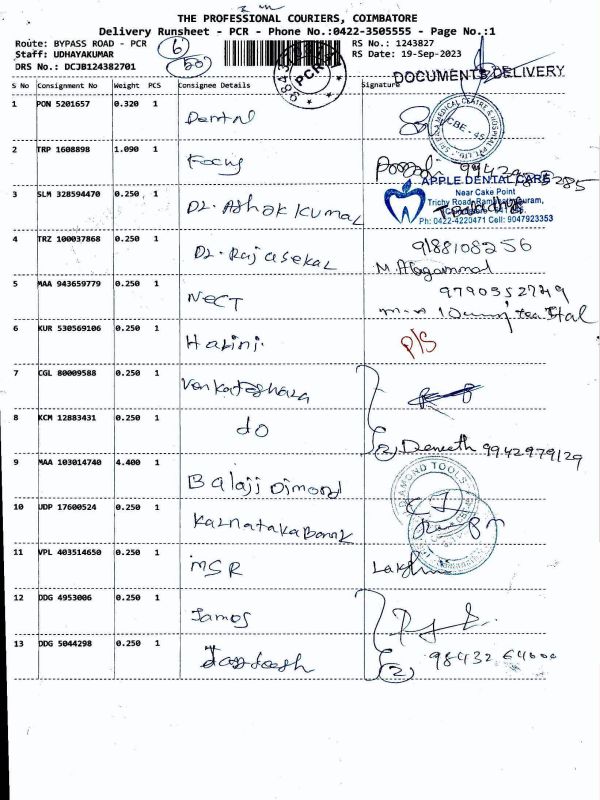 THE PROFESSIONAL COURIERS, COIMBATORE
Delivery Runsheet - PCR - Phone No.:0422-3505555 - Page No.:1
Route: BYPASS ROAD - PCR
Staff: UDHAYAKUMAR
DRS No.: DCJB124382701
6
50
PCR
RS No.: 1243827
RS Date: 19-Sep-2023
DOCUMENTS DELIVERY
S No Consignment No Weight PCS Consignee Details Signature
1 PON 5201657 0.320 1 Dental
2 TRP 1608898 1.090 1 Focus
3 SLM 328594470 0.250 1 Dr. Ashok Kumar
APPLE DENTAL CARE
Near Cake Point
Ph: 0422-4220471 Cell: 9047923353
4 TRZ 100037868 0.250 1 Dr. Rajasekar 9188108256
M. Alagammal
5 MAA 943659779 0.250 1 NECT 9790552729
6 KUR 530569106 0.250 1 Harini. P/S
7 CGL 80009588 0.250 1 Venkateshara
8 KCM 12883431 0.250 1 do (2) Deneeth 9942979129
9 MAA 103014740 4.400 1 Balaji Dimond
DIAMOND TOOLS
10 UDP 17600524 0.250 1 Karnataka Bank
11 VPL 403514650 0.250 1 MSR Lakshm
12 DDG 4953006 0.250 1 Jamos
13 DDG 5044298 0.250 1 (2) 98432 64600